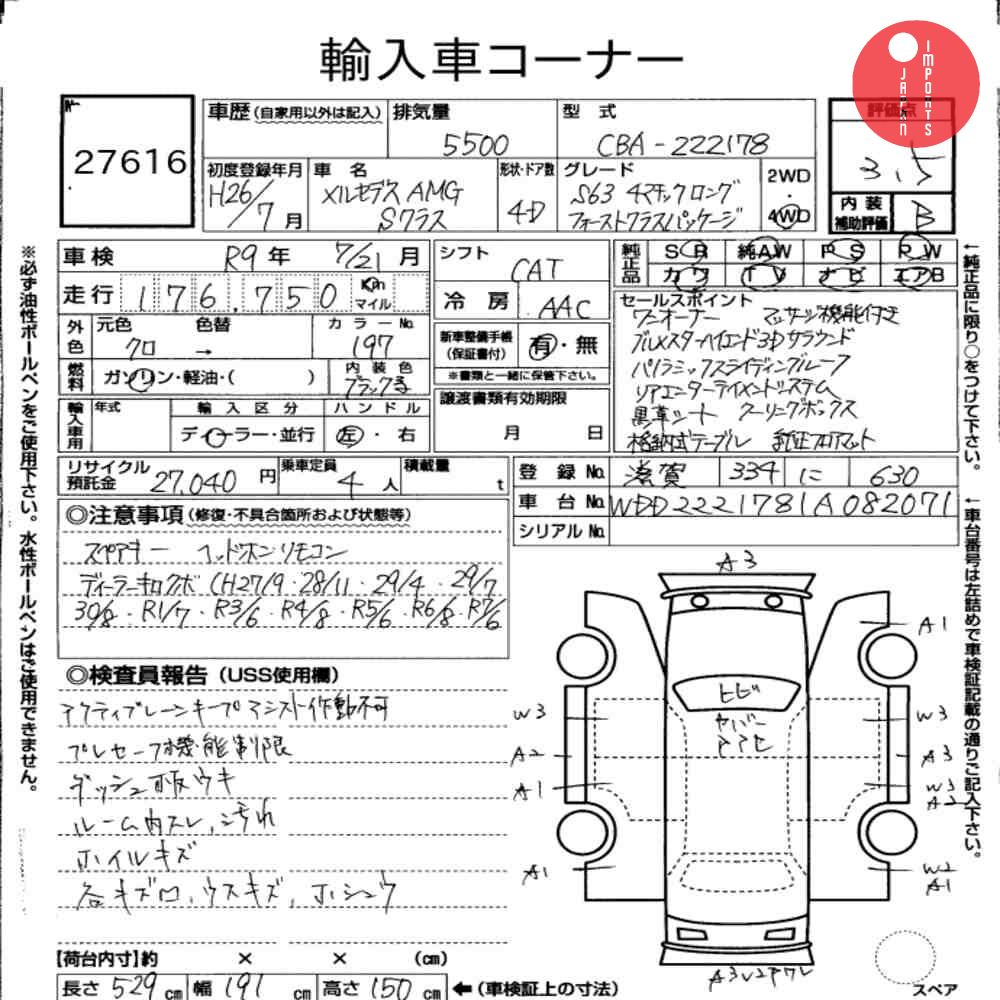 輸入車コーナー
JAPAN IMPORTS
27616
車歴 (自家用以外は記入)
排気量
5500
型 式
CBA-222178
評価点
3.5
初度登録年月
H26/7月
車 名
メルセデス AMG
Sクラス
形状・ドア数
4D
グレード
S63 4マチックロング
ファーストクラスパッケージ
2WD
・
4WD
内 装
補助評価
B
車検
R9年 7/21月
シフト
CAT
純正品
SR 純AW PS RW
カワ TV ナビ エアB
走行
176,750
Km
マイル
冷 房
AAC
セールスポイント
ワンオーナー マッサージ機能付き
ブルメスターハイエンド3Dサラウンド
パノラミックスライディングルーフ
リアエンターテイメントシステム
黒革シート クーリングボックス
格納式テーブル 純正フロアマット
外色
元色
クロ
色替
→
カラーNo.
197
新車整備手帳
(保証書付)
有・無
※書類と一緒に保管下さい。
燃料
ガソリン・軽油・( )
内 装 色
ブラック系
譲渡書類有効期限
月 日
輸入車用
年式
輸 入 区 分
ディーラー・並行
ハ ン ド ル
左・右
リサイクル
預託金
27,040円
乗車定員
4人
積載量
t
登 録 No.
滋賀 334 に 630
車 台 No.
WDD2221781A082071
シリアル No.
◎注意事項 (修復・不具合箇所および状態等)
スペアキー ヘッドホン リモコン
ディーラーキロクボ (H27/9・28/11・29/4・29/7
30/8・R1/7・R3/6・R4/8・R5/6・R6/8・R7/6
◎検査員報告 (USS使用欄)
アクティブレーンキープアシスト作動不可
プレセーフ機能制限
ダッシュ板ウキ
ルーム内スレ、汚れ
ホイルキズ
各キズロ、ウスキズ、ホシュウ
A3
A1
ヒビ
W3
W3
A2
A3
A1
W3
A2
A1
W2
A1
スペア
【荷台内寸】約 × × (cm)
長さ 529 cm 幅 191 cm 高さ 150 cm ←(車検証上の寸法)
※必ず油性ボールペンをご使用下さい。水性ボールペンはご使用できません。
←純正品に限り○をつけて下さい。
←車台番号は左詰めで車検証記載の通りご記入下さい。